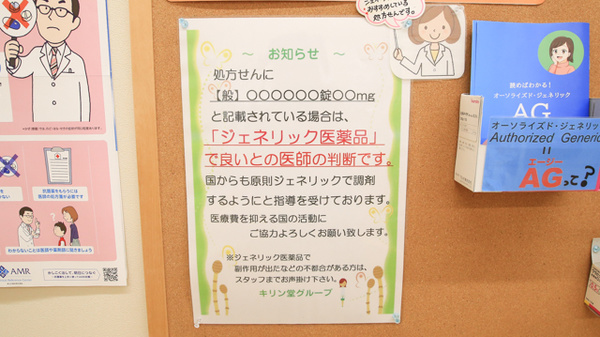 ～ お知らせ ～
処方せんに
【般】〇〇〇〇〇〇錠〇〇mg
と記載されている場合は、
「ジェネリック医薬品」
で良いとの医師の判断です。
国からも原則ジェネリックで調剤
するようにと指導を受けております。
医療費を抑える国の活動に
ご協力よろしくお願い致します。
※ジェネリック医薬品で
副作用が出たなどの不都合がある方は、
スタッフまでお声掛け下さい。
キリン堂グループ
おすすめしている
処方せんです。
読めばわかる!
オーソライズド・ジェネリック
AG
オーソライズド・ジェネリック
Authorized Generic
=
エージー
AGって?
抗菌薬をもらうには
医師の処方箋が必要です
わからないことは医師や薬剤師に聞きましょう
AMR